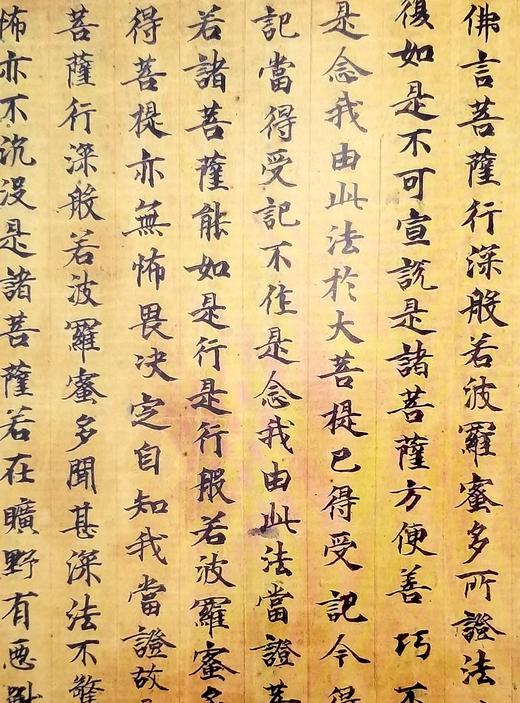 佛言菩薩行深般若波羅蜜多所證法
復如是不可宣說是諸菩薩方便善巧不
是念我由此法於大菩提已得受記今得
記當得受記不住是念我由此法當證菩
若諸菩薩能如是行是行般若波羅蜜多
得菩提亦無怖畏決定自知我當證故
菩薩行深般若波羅蜜多聞甚深法不驚
怖亦不沉没是諸菩薩若在曠野有惡獸